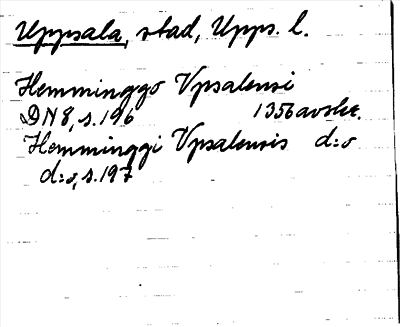 Uppsala, stad, Upps. l.
Hemminggo Vpsalensi
DN 8, s. 196 1356 avskr.
Hemminggi Vpsalensis d:o
d:o, s. 197